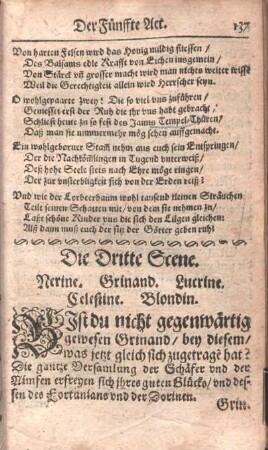 Der Fünffte Act. 137
Von harten Felsen wird das Honig mildig fliessen /
Des Balsams edle Krafft von Eichen insgemein /
Von Stärck vñ grosser macht wird man nichts weiter wissẽ
Weil die Gerechtigkeit allein wird Herrscher seyn.
O wohlgepaarte zwey! Die so viel vns zuführen /
Geniesset erst der Ruh die ihr vns habt gebracht /
Schließt heute zu so fest des Janus Tempel-Thüren /
Daß man sie nimmermehr mög sehen auffgemacht.
Ein wohlgeborner Stam̃ nehm aus euch sein Entspringen /
Der die Nachkömlingen in Tugend unterweiß /
Deß hohe Seele stets nach Ehre möge ringen /
Der zur vnsterbligkeit sich von der Erden reiß:
Vnd wie der Lorbeerbaum wohl tausend kleinen Sträuchen
Teilt seinen Schatten mit / von dem sie nehmen zu /
Laßt schöne Kinder vns die sich den Eltgen gleichen:
Alß dann muß euch der sitz der Götter geben ruh!
Die Dritte Scene.
Nerine. Grinand. Lucrine.
Celestine. Blondin.
BIst du nicht gegenwärtig
gewesen Grinand / bey diesem /
was jetzt gleich sich zugetragẽ hat?
Die gantze Versamlung der Schäfer vnd der
Nimfen erfreyen sich jhres guten Glücks / vnd des-
sen des Fortunians vnd der Dorinen.
Grin.